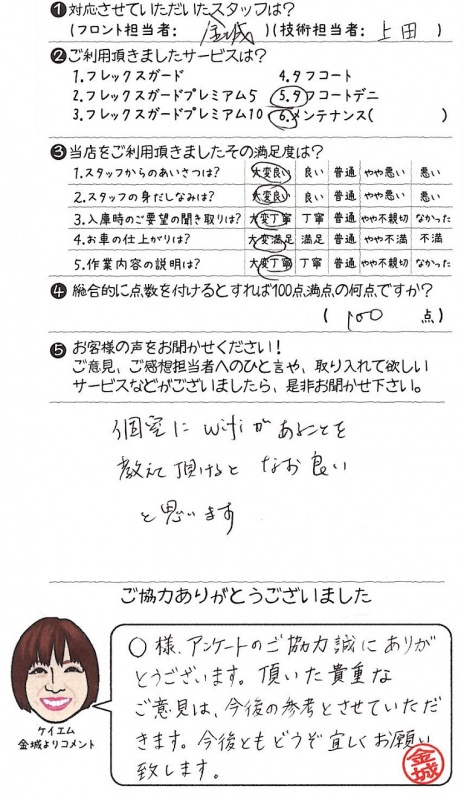 ❶対応させていただいたスタッフは?
(フロント担当者: 金城 )(技術担当者: 上田 )
❷ご利用頂きましたサービスは?
1.フレックスガード 4.タフコート
2.フレックスガードプレミアム5 5.タフコートデニ
3.フレックスガードプレミアム10 6.メンテナンス( )
❸当店をご利用頂きましたその満足度は?
1.スタッフからのあいさつは? 大変良い 良い 普通 やや悪い 悪い
2.スタッフの身だしなみは? 大変良い 良い 普通 やや悪い 悪い
3.入庫時のご要望の聞き取りは? 大変丁寧 丁寧 普通 やや不親切 なかった
4.お車の仕上がりは? 大変満足 満足 普通 やや不満 不満
5.作業内容の説明は? 大変丁寧 丁寧 普通 やや不親切 なかった
❹総合的に点数を付けるとすれば100点満点の何点ですか?
( 100 点)
❺お客様の声をお聞かせください!
ご意見、ご感想担当者へのひと言や、取り入れて欲しい
サービスなどがございましたら、是非お聞かせ下さい。
個室にwifiがあることを
教えて頂けるとなお良い
と思います
ご協力ありがとうございました
〇様、アンケートのご協力誠にありが
とうございます。頂いた貴重な
ご意見は、今後の参考とさせていただ
きます。今後ともどうぞ宜しくお願い
致します。
金城
ケイエム
金城よりコメント